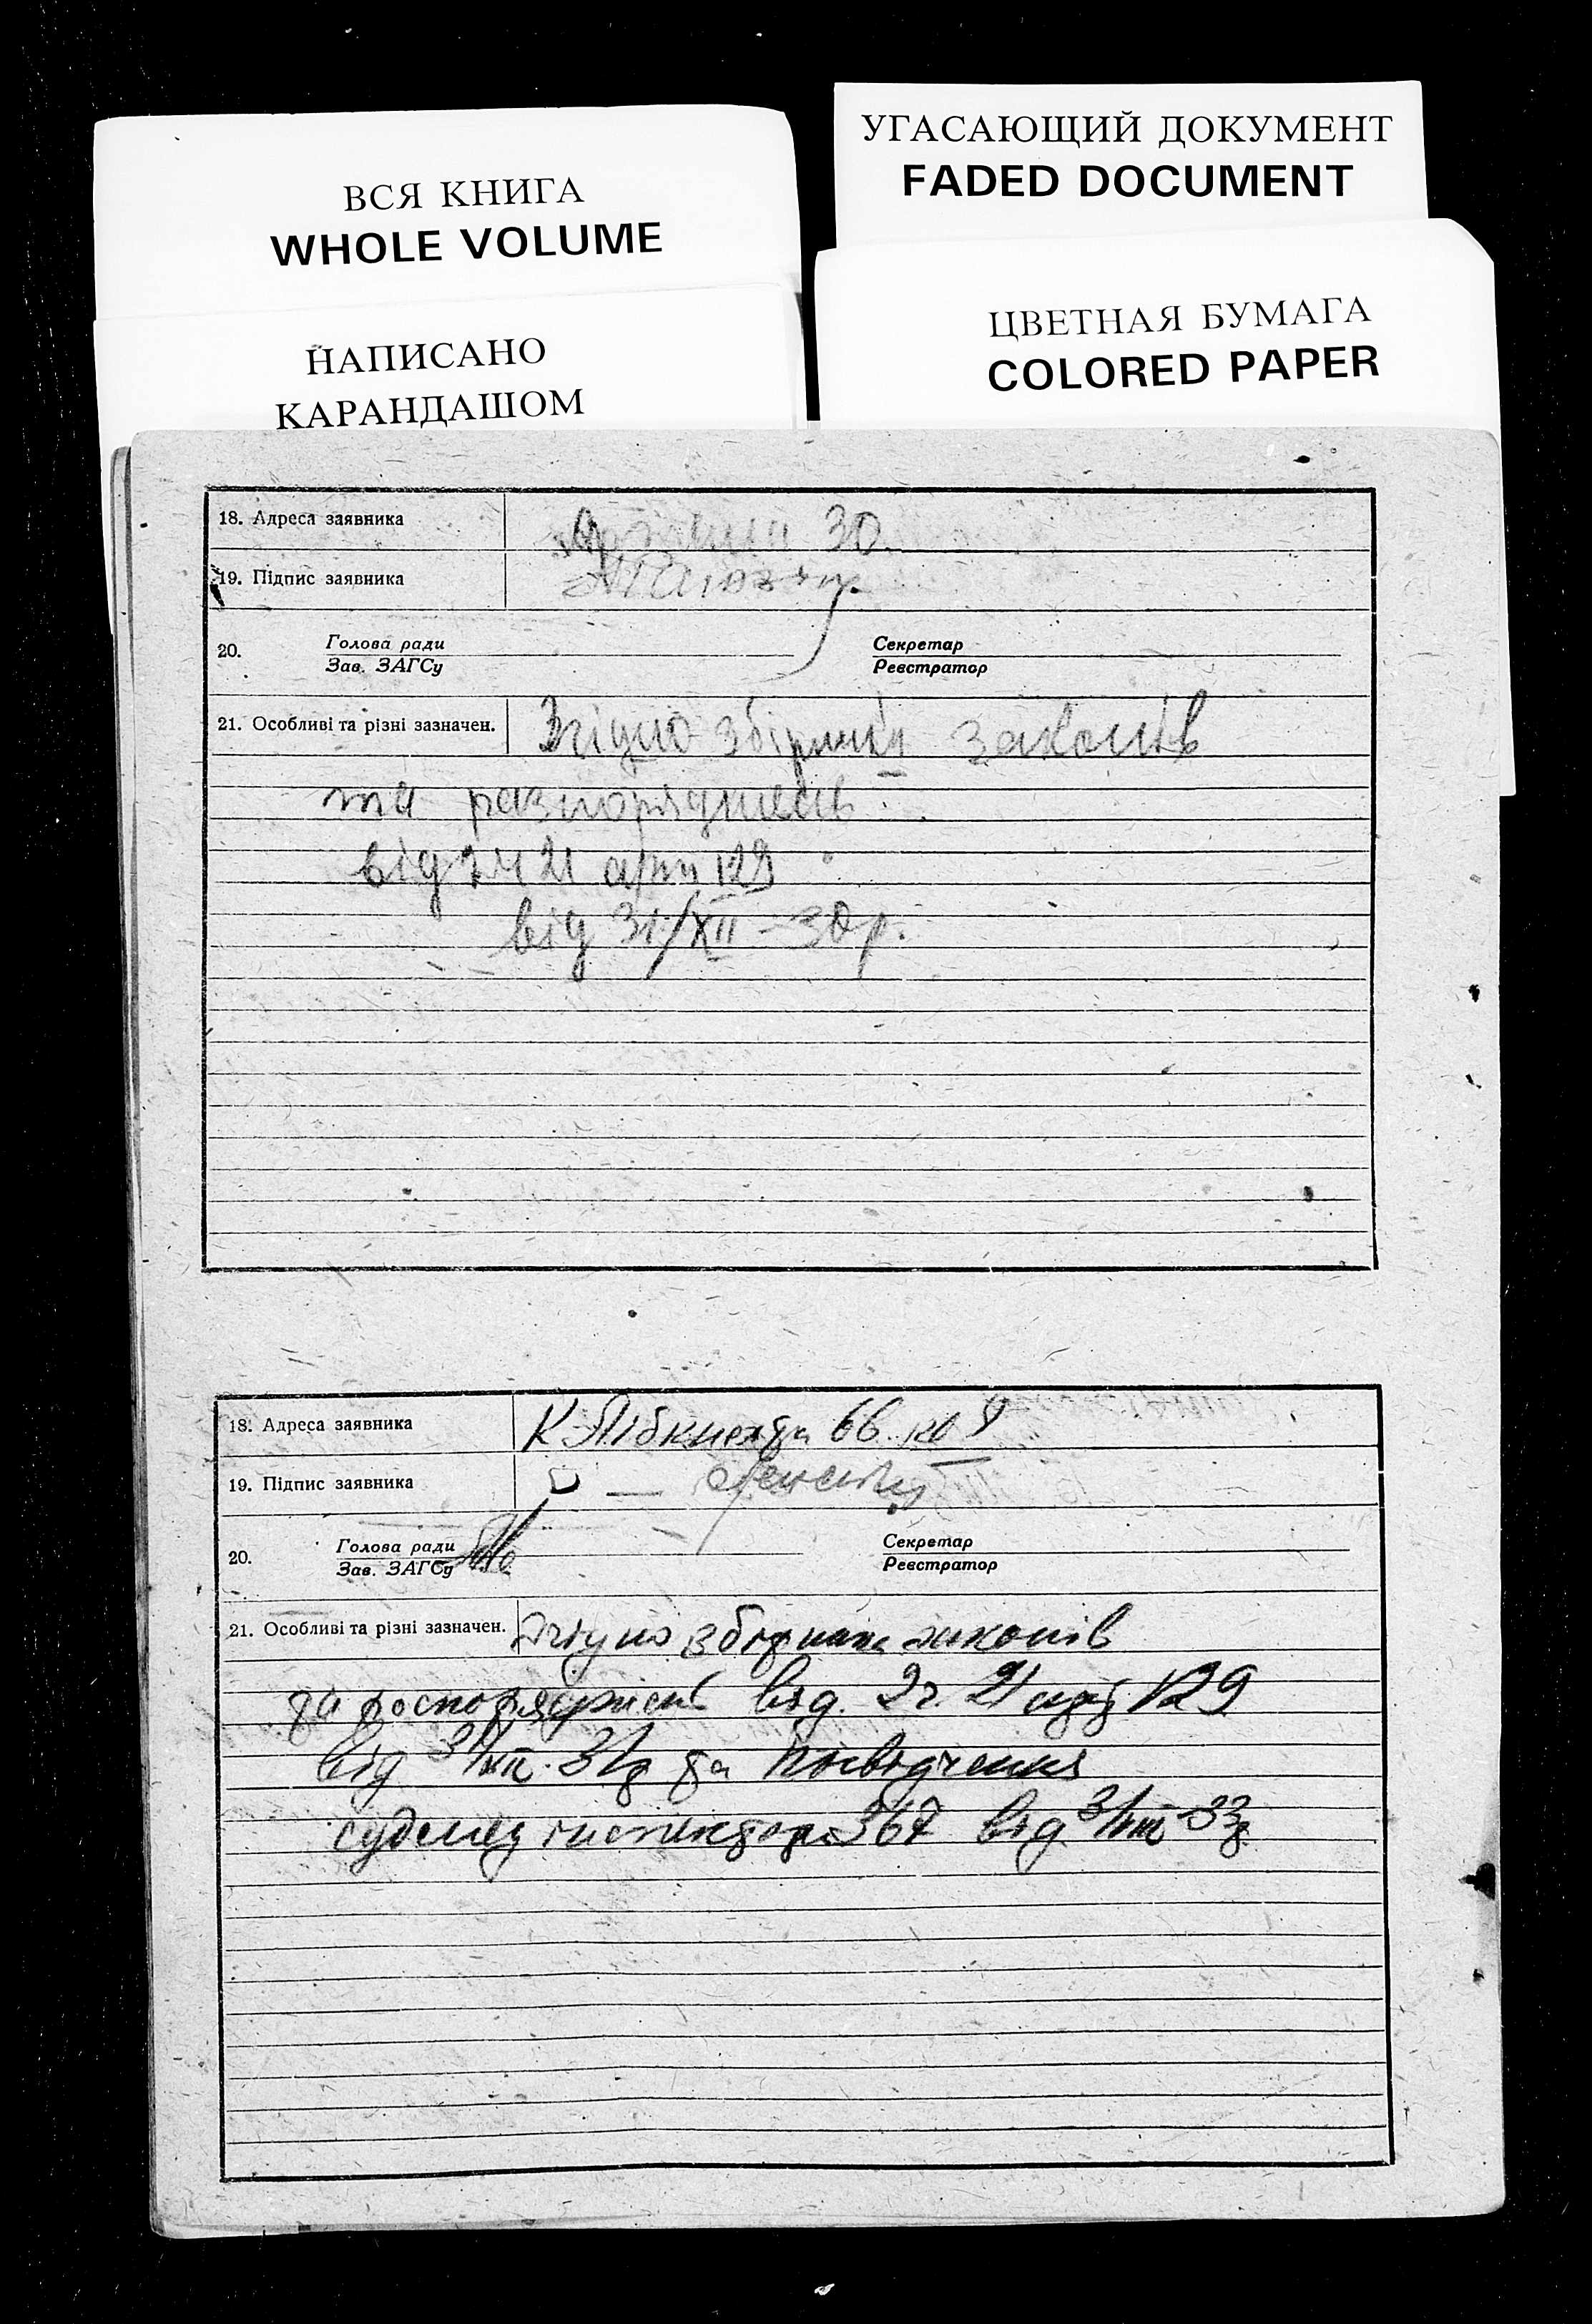 ВСЯ КНИГА
WHOLE VOLUME
УГАСАЮЩИЙ ДОКУМЕНТ
FADED DOCUMENT
НАПИСАНО
КАРАНДАШОМ
ЦВЕТНАЯ БУМАГА
COLORED PAPER
18. Адреса заявника 30.
19. Підпис заявника
20. Голова ради Секретар
Зав. ЗАГСу Реєстратор
21. Особливі та різні зазначен. Згідно збірника законів
та разпоряджень
від 2 ч 21 арт 129
від 31/XII – 30 р.
18. Адреса заявника К Лібкнехта 66
19. Підпис заявника
20. Голова ради Секретар
Зав. ЗАГСу Реєстратор
21. Особливі та різні зазначен. Згідно збірника законів
та роспоряджень від. 2 ч. 21 арт 129
від 31/XII. 31р та посвідчення
судмед інспектора 367 від 33р